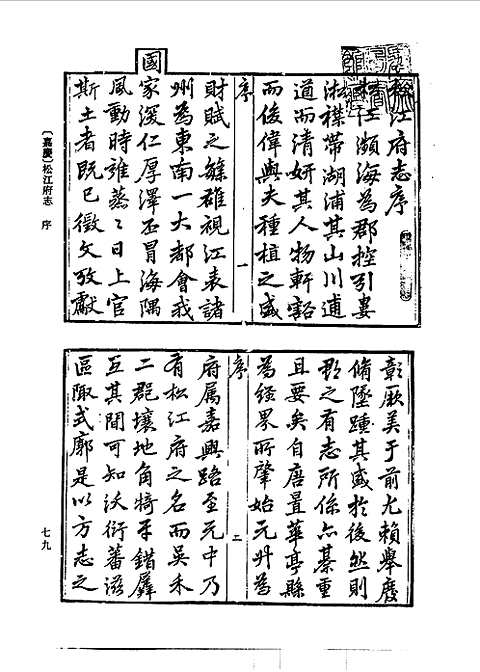 松江府志序
松江瀕海為郡控引婁
淞襟帶湖浦其山川逋
道而清妍其人物軒豁
而俊偉與夫種植之盛
序
一
財賦之雄視江表諸
州為東南一大都會我
國
家深仁厚澤丕冒海隅
風動時雍蒸〻日上官
斯土者既已徵文攷獻
〔嘉慶〕松江府志 序
彰厥美于前尤賴舉廢
脩墜踵其盛於後然則
郡之有志所係亦綦重
且要矣自唐置華亭縣
為經界所肇始元升為
序
二
府属嘉興路至元中乃
有松江府之名而吳禾
二郡壤地角犄牙錯孱
互其間可知沃衍蕃滋
區陬式廓是以方志之
七九